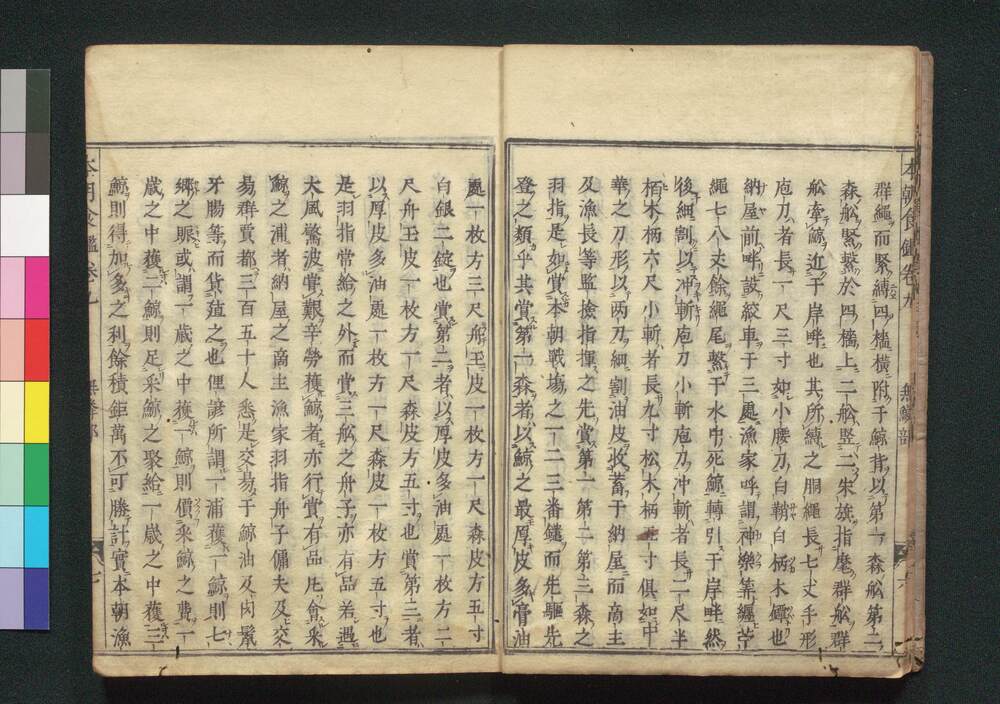 本朝食鑑卷九　無鱗部
群繩而緊縛四檣橫附于鯨背以第一森舩第二
森舩緊繫於四檣上二舩竪二朱旗指麾群舩群
舩牽鯨近于岸畔也其所縛之胴繩長七丈手形
庖刀者長一尺三寸如小腰刀白鞘白柄木鐔也
納屋前畔設絞車于三處漁家呼謂神樂筭纏苧
繩七八丈餘繩尾繫于水中死鯨轉引于岸畔然
後繩割以冲斬庖刀小斬庖刀冲斬者長二尺半
栢木柄六尺小斬者長九寸松木柄寸俱如中
華之刀形以両刀細割油皮收蓄于納屋而商主
及漁長等監撿指揮之先賞第一第二第三森之
羽指是如賞本朝戰塲之一二三番鑓而先驅先
登之類乎其賞第一森者以鯨之最厚皮多膏油
處一枚方三尺舟玉皮一枚方一尺森皮方五寸
白銀二錠也賞第二者以厚皮多油處一枚方二
尺舟玉皮一枚方一尺森皮方五寸也賞第三者
以厚皮多油處一枚方一尺森皮一枚方五寸也
是羽指常給之外而賞三舩之舟子亦有品若遇
大風驚波甞艱辛勞獲鯨者亦行賞有品凡會采
鯨之浦者納屋之商主漁家羽指舟子傭夫及交
昜群賈都三百五十人悉是交昜于鯨油及肉鬚
牙腸等而貨殖之也俚諺所謂一浦獲一鯨則七
郷之賑或謂一歲之中獲一鯨則價采鯨之費一
歲之中獲二鯨則足采鯨之聚給一歲之中獲三
鯨則得加多之利餘積鉅萬不可勝計實本朝漁
本朝食鑑卷九　無鱗部　七